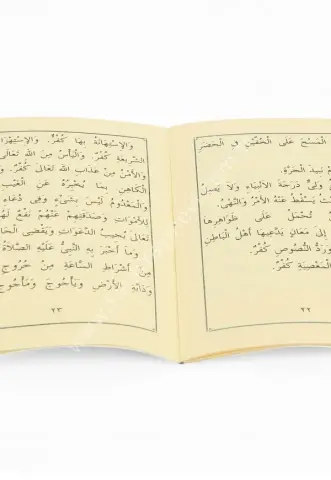 الْمَسْحَ عَلَى الْخُفَّيْنِ فِي الْحَضَرِ
نَبِيذَ الْجَرَّةِ.
وَلِيٌّ دَرَجَةَ الْأَنْبِيَاءِ وَلَا يَصِلُ
يَسْقُطُ عَنْهُ الْأَمْرُ وَالنَّهْيُ.
تُحْمَلُ عَلَى ظَوَاهِرِهَا
إِلَى مَعَانٍ يَدَّعِيهَا أَهْلُ الْبَاطِنِ
وَرَدُّ النُّصُوصِ كُفْرٌ.
الْمَعْصِيَةِ كُفْرٌ.
٢٢
وَالِاسْتِهَانَةُ بِهَا كُفْرٌ. وَالِاسْتِهْزَاءُ
الشَّرِيعَةِ كُفْرٌ. وَالْيَأْسُ مِنَ اللهِ تَعَالَى
وَالْأَمْنُ مِنْ عَذَابِ اللهِ تَعَالَى كُفْرٌ.
الْكَاهِنِ بِمَا يُخْبِرُهُ عَنِ الْغَيْبِ
وَالْمَعْدُومُ لَيْسَ بِشَيْءٍ. وَفِي دُعَاءِ
لِلْأَمْوَاتِ وَصَدَقَتِهِمْ عَنْهُمْ نَفْعٌ لَهُمْ
تَعَالَى يُجِيبُ الدَّعَوَاتِ وَيَقْضِي
وَمَا أَخْبَرَ بِهِ النَّبِيُّ عَلَيْهِ الصَّلَاةُ
مِنْ أَشْرَاطِ السَّاعَةِ مِنْ خُرُوجِ
وَدَابَّةِ الْأَرْضِ وَيَأْجُوجَ وَمَأْجُوجَ
٢٣